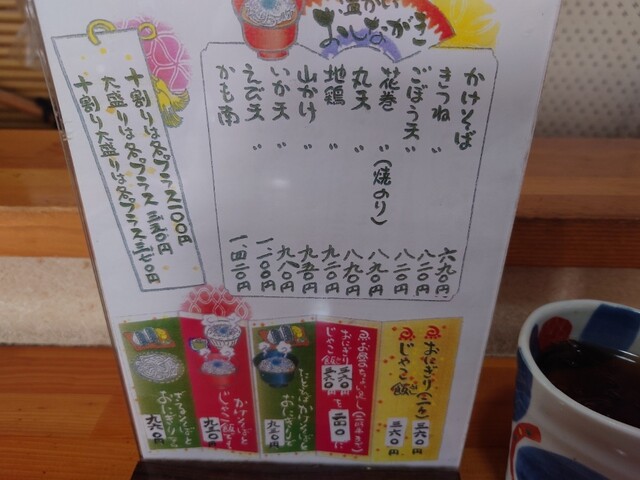 温かい
おしながき
かけそば 六九〇円
きつね 〃 八二〇円
ごぼう天 〃 八二〇円
花巻 〃 (焼のり) 八九〇円
丸天 〃 八九〇円
地鶏 〃 九二〇円
山かけ 〃 九五〇円
いか天 〃 九八〇円
えび天 〃 一、二〇〇円
かも南 一、四二〇円
十割りは各プラス一〇〇円
大盛りは各プラス三五〇円
十割り大盛りは各プラス三七〇円
おにぎり(二ヶ) 三六〇円
じゃこ飯 三六〇円
おにぎり 三六〇円
じゃこ飯 三六〇円
を 二四〇 に
おにぎり 九三〇円
かけそばと
じゃこ飯 九三〇円
ざるそばと
おにぎり 九六〇円